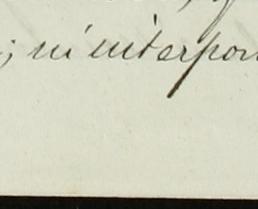 ; ni interpon